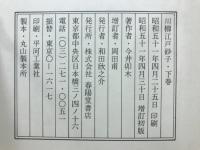 川柳江戸砂子・下巻
昭和五十一年四月二十日 印刷
昭和五十一年四月三十日 増訂初版
著作者・今井卯木
増訂者・岡田甫
発行者・和田欣之介
発行所・株式会社 春陽堂書店
東京都中央区日本橋三ノ四ノ十六
電話〇三(二七一)〇〇五一
振替・東京〇―一六一七
印刷・平河工業社
製本・丸山製本所